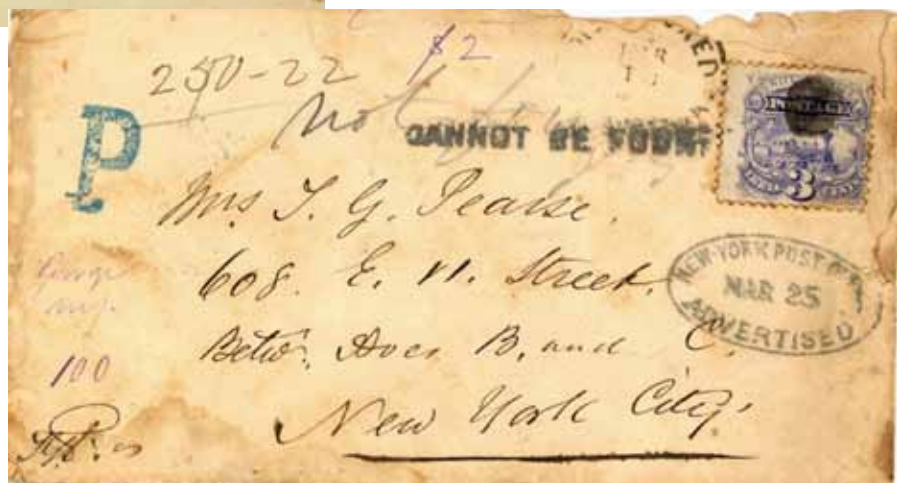 250-22 $2
not
CANNOT BE FOUND
P
POSTAGE
3
Mrs. T. G. Pearse.
608. E. 11. Street.
Betw. Aves B. and C.
New York City.
NEW-YORK POST
MAR 25
ADVERTISED
100